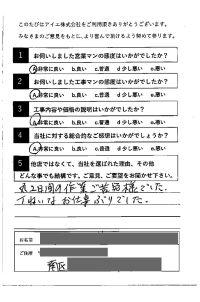 このたびはアイエ株式会社をご利用頂きありがとうございます。
みなさまのご意見をもとに、より営んで頂けるよう努めて参ります。
1 お伺いしました営業マンの態度はいかがでしたか？
A.非常に良い b.良い c.普通 d.少し悪い e.悪い
2 お伺いしました工事マンの態度はいかがでしたか？
A.非常に良い b.良い c.普通 d.少し悪い e.悪い
3 工事内容や価格の説明はいかがでしたか？
A.非常に良い b.良い c.普通 d.少し悪い e.悪い
4 当社に対する総合的なご感想はいかがでしょうか？
A.非常に良い b.良い c.普通 d.少し悪い e.悪い
5 他店ではなくて、当社を選ばれた理由、その他
どんな事でも結構です。ご意見、ご要望をお聞かせ下さい。
2日間の作業ご苦労様でした。
丁ねいなお仕事ぶりでした。
お名前
ご住所
南区